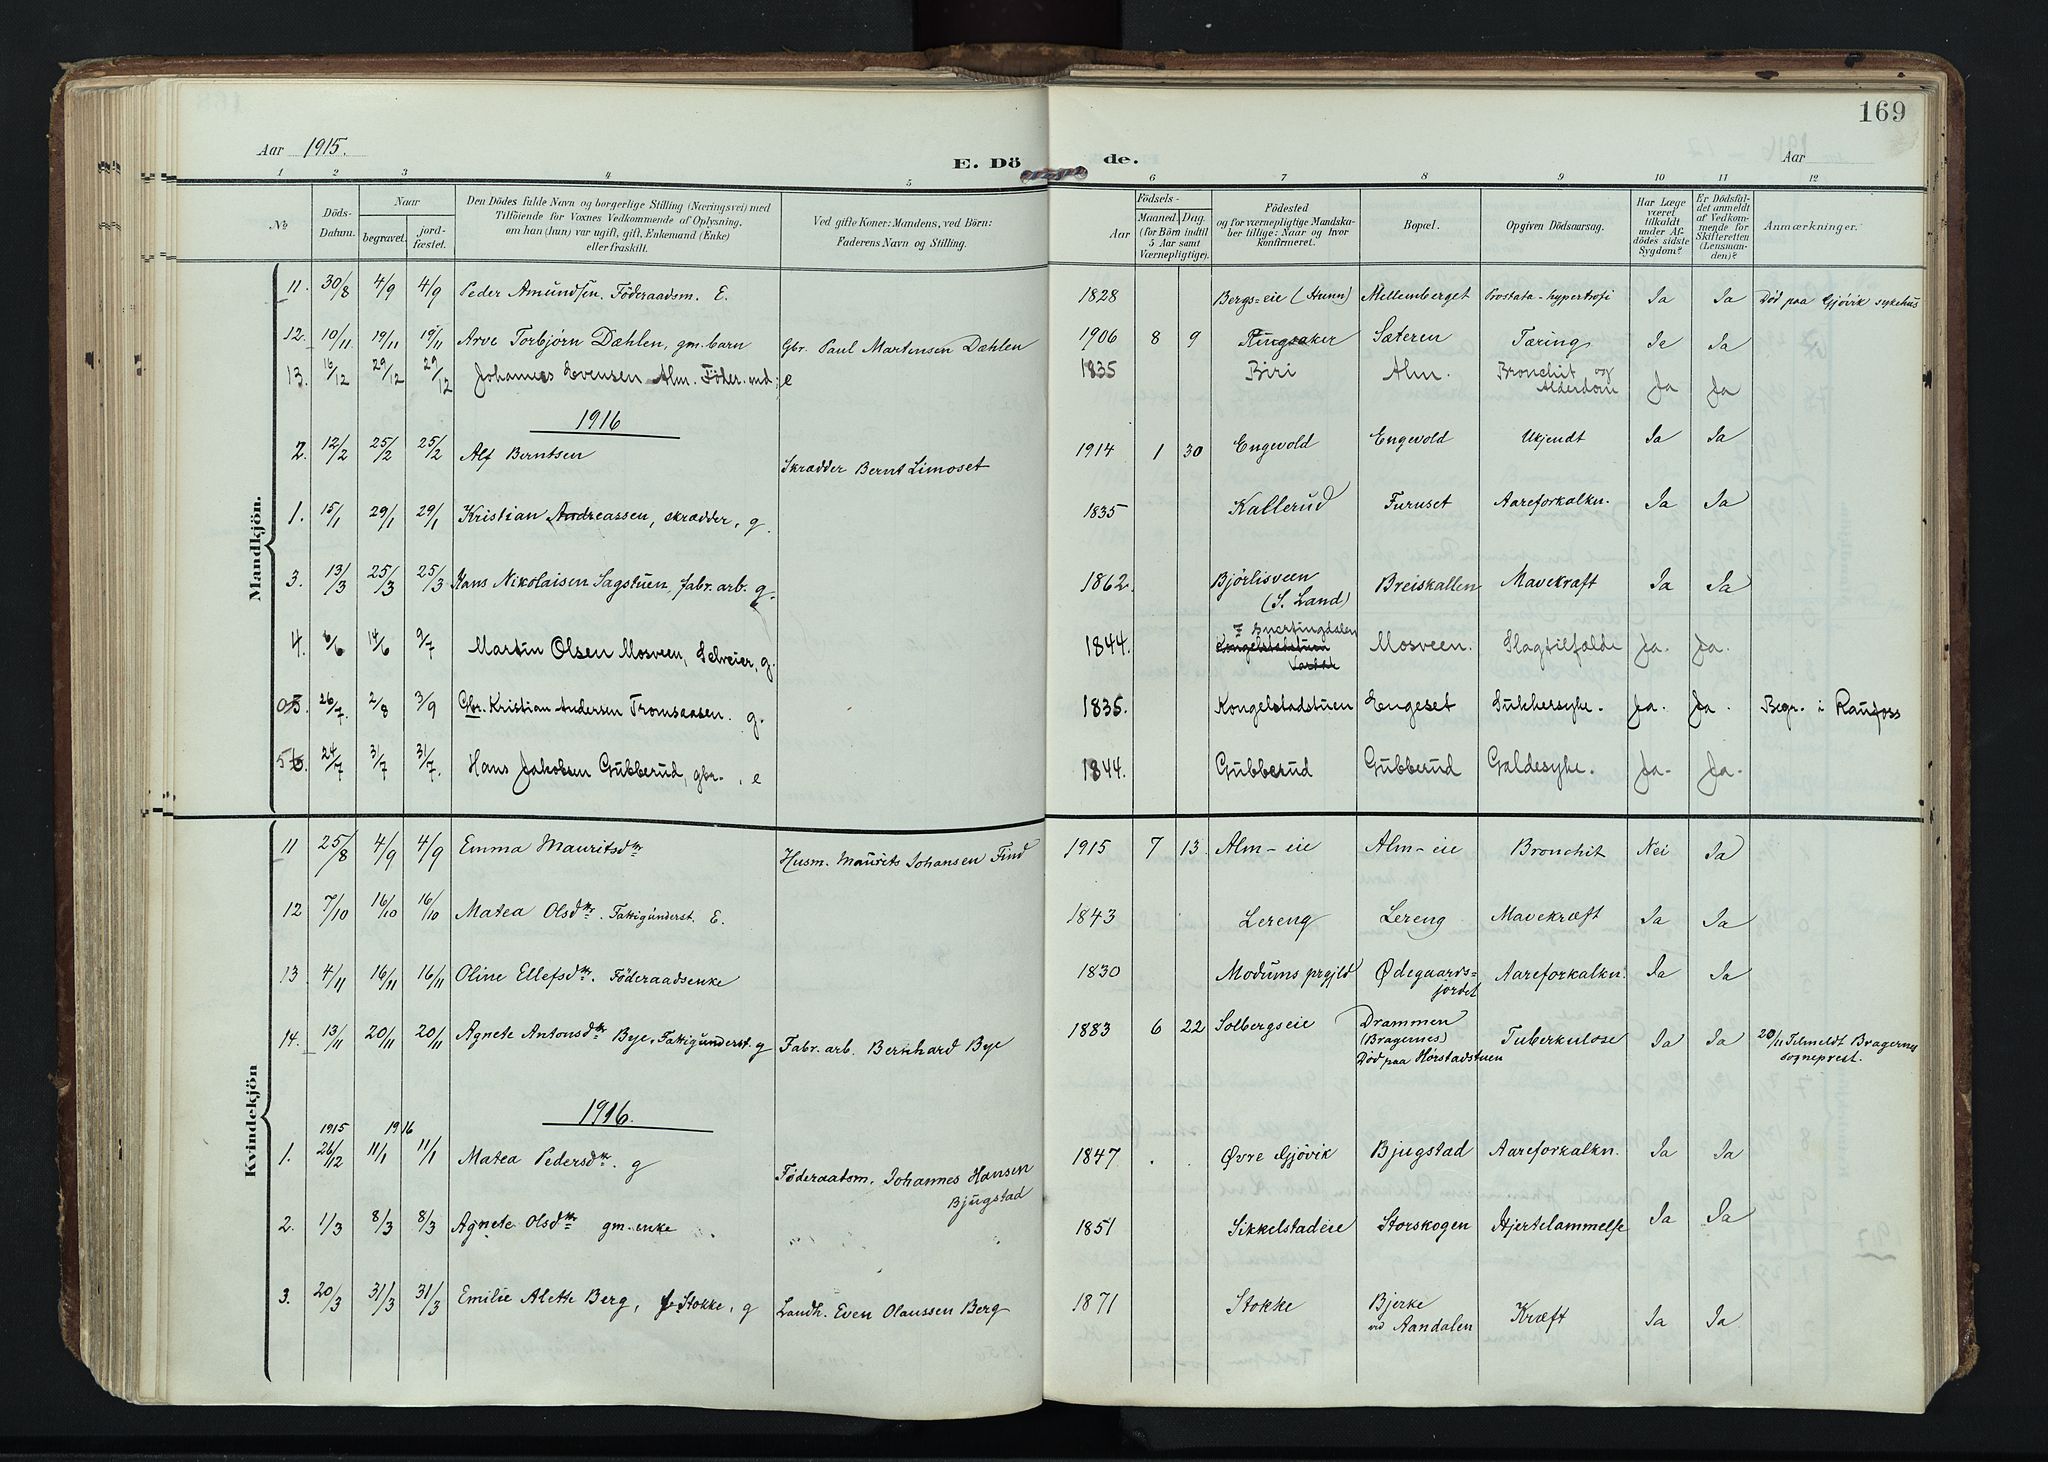 169
Aar 1915.
E. Döde.
Aar
1 2 3 4 5 6 7 8 9 10 11 12
No.
Döds-Datum.
Naar
begravet.
jord-fæstet.
Den Dödes fulde Navn og borgerlige Stilling (Næringsvei) med
Tilföiende for Voxnes Vedkommende af Oplysning,
om han (hun) var ugift, gift, Enkemand (Enke)
eller fraskilt.
Ved gifte Koner: Mandens, ved Börn:
Faderens Navn og Stilling.
Födsels-
Aar
Maaned. Dag.
(for Börn indtil
5 Aar samt
Værnepligtige).
Födested
og for værnepligtige Mandska-
ber tillige: Naar og hvor
Konfirmeret.
Bopæl.
Opgiven Dödsaarsag.
Har Læge
været
tilkaldt
under Af-
dödes sidste
Sygdom?
Er Dödsful-
det anmeldt
af Vedkom-
mende for
Skifteretten
(Lensman-
den)?
Anmærkninger.
Mandkjön.
11. 30/8 4/9 4/9 Peder Amundsen. Föderaadsm. E. 1828 Bergs=eie (Hunn) Mellemberget Prostata-hypertrofi Ja Ja Död paa Gjövik sykehus
12. 10/11 19/11 19/11 Arve Torbjörn Dæhlen, gm. barn Gbr. Paul Martinsen Dæhlen 1906 8 9 Ringsaker Sæteren Tæring Ja Ja
13. 16/12 29/12 29/12 Johannes Evensen Alm. Föder.md; e 1835 Biri Alm. Bronchit og Alderdom Ja Ja
1916
2. 12/2 25/2 25/2 Alf Berntsen Skrædder Bernt Limoset 1914 1 30 Engevold Engevold Ukjendt Ja Ja
1. 15/1 29/1 29/1 Kristian Andreassen, skrædder, g. 1835 Kallerud Furuset Aareforkalkn. Ja Ja
3. 13/3 25/3 25/3 Hans Nikolaisen Sagstuen, fabr. arb. g. 1862. Bjørlisveen (S. Land) Breiskallen Mavekræft Ja Ja
4. 6/6 14/6 9/7 Martin Olsen Mosveen, Selveier, g. 1844. Snertingdalen Kongelstadstuen Vardal Mosveen. Slagtilfælde Ja. Ja.
26/7. 2/8 3/9 Gbr. Kristian Andersen Tromsaasen. g. 1835. Kongelstadstuen Engeset Sukkersyke. Ja. Ja. Begr. i Raufoss
24/7 31/7 31/7. Hans Jakobsen Gubberud, gbr., e 1844. Gubberud Gubberud Galdesyke. Ja. Ja.
Kvindekjön
11 25/8 4/9 4/9 Emma Mauritsdtr Husm. Maurits Johansen Find 1915 7 13. Alm-eie Alm-eie Bronchit Nei Ja
12 7/10 16/10 16/10 Matea Olsdtr. Fattigunderst. E. 1843 Lereng Lereng Mavekræft Ja Ja
13 4/11 16/11 16/11 Oline Ellefsdtr. Föderaadsenke 1830 Modums prgjld Ødegaards-jordet Aareforkalkn. Ja Ja
14. 13/11 20/11 20/11 Agnete Antonsdtr Bye. Fattigunderst. g Fabr. arb. Bernhard Bye 1883 6 22 Solbergseie Drammen (Bragernes) Död paa Hørstadstuen Tuberkulose Ja Ja 20/11 Tilmeldt Bragernes sogneprest.
1916.
1915 1916
1. 26/12 11/1 11/1 Matea Pedersdtr. g Föderaadsm. Johannes Hansen Bjugstad 1847 Øvre Gjövik Bjugstad Aareforkalkn. Ja Ja
2. 1/3 8/3 8/3 Agnete Olsdtr gm. enke 1851 Sikkelstadeie Storskogen Hjertelammelse Ja Ja
3. 20/3 31/3 31/3 Emilie Alette Berg, f. Stokke, g Landh. Even Olaussen Berg 1871 Stokke Bjerke ved Aandalen Kræft Ja Ja